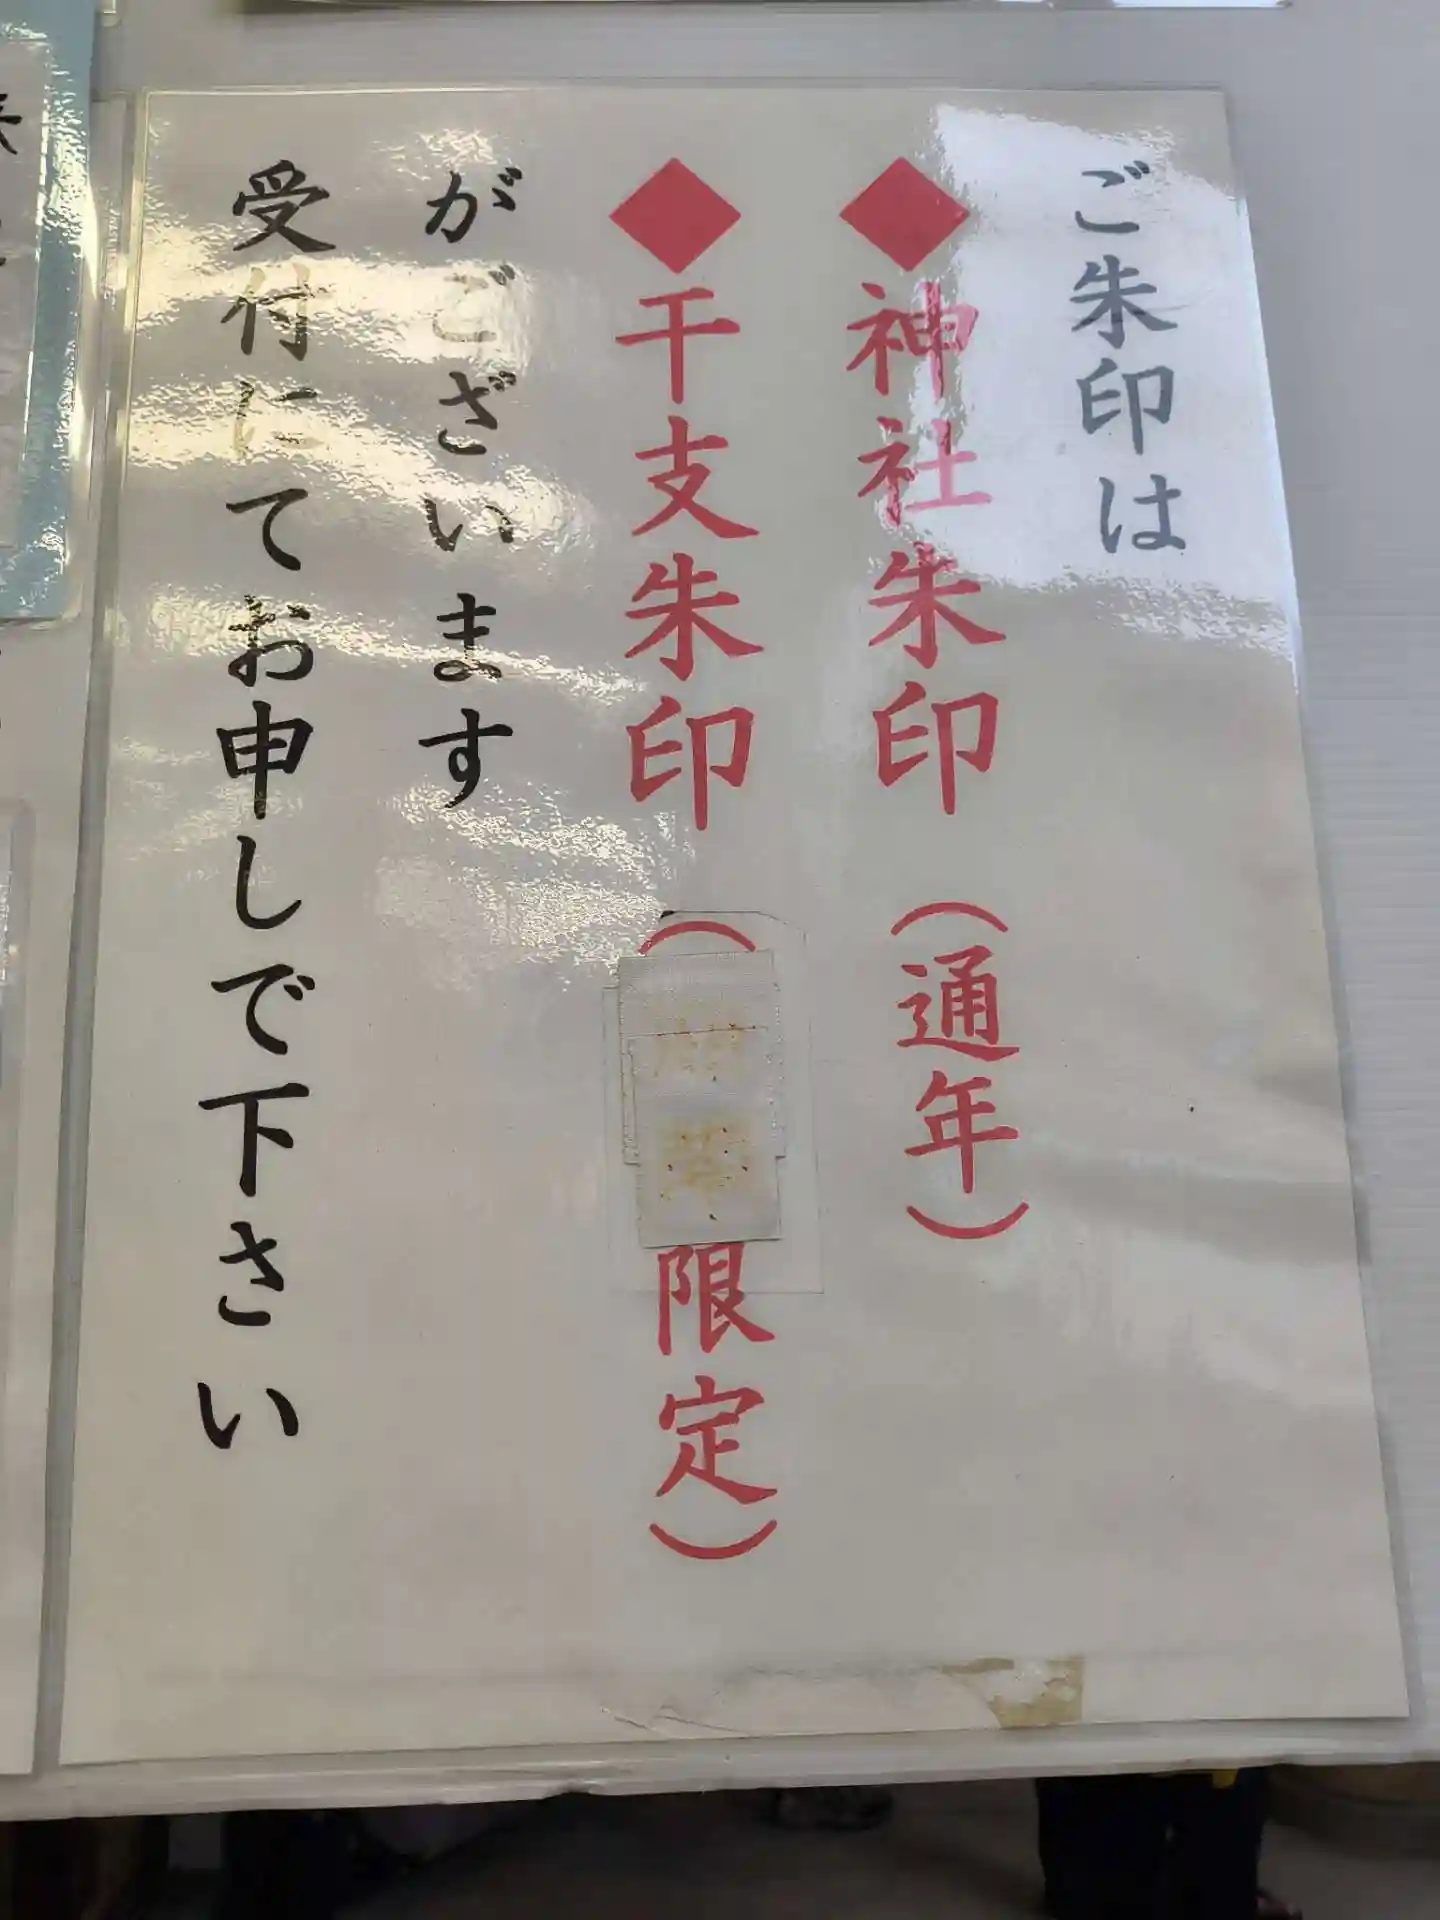 ご朱印は
◆神社朱印（通年）
◆干支朱印（限定）
がございます
受付にてお申しで下さい